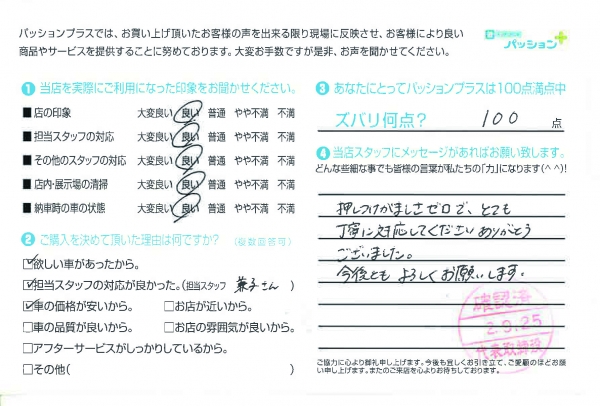 パッションプラスでは、お買い上げ頂いたお客様の声を出来る限り現場に反映させ、お客様により良い
商品やサービスを提供することに努めております。大変お手数ですが是非、お声を聞かせてください。
パッション+
❶ 当店を実際にご利用になった印象をお聞かせください。
■店の印象 大変良い 良い 普通 やや不満 不満
■担当スタッフの対応 大変良い 良い 普通 やや不満 不満
■その他のスタッフの対応 大変良い 良い 普通 やや不満 不満
■店内・展示場の清掃 大変良い 良い 普通 やや不満 不満
■納車時の車の状態 大変良い 良い 普通 やや不満 不満
❷ ご購入を決めて頂いた理由は何ですか? (複数回答可)
☑欲しい車があったから。
☑担当スタッフの対応が良かった。(担当スタッフ 兼子さん )
☑車の価格が安いから。 □お店が近いから。
□車の品質が良いから。 □お店の雰囲気が良いから。
□アフターサービスがしっかりしているから。
□その他( )
❸ あなたにとってパッションプラスは100点満点中
ズバリ何点? 100 点
❹ 当店スタッフにメッセージがあればお願い致します。
どんな些細な事でも皆様の言葉が私たちの「力」になります(^ ^)!
押しつけがましさゼロで、とても
丁寧に対応してくださいありがとう
ございました。
今後とも よろしくお願いします。
確認済
2.9.25
代表取締役
ご協力に心より御礼申し上げます。今後も宜しくお引き立て、ご愛顧のほどお願
い申し上げます。またのご来店を心よりお待ちしております。